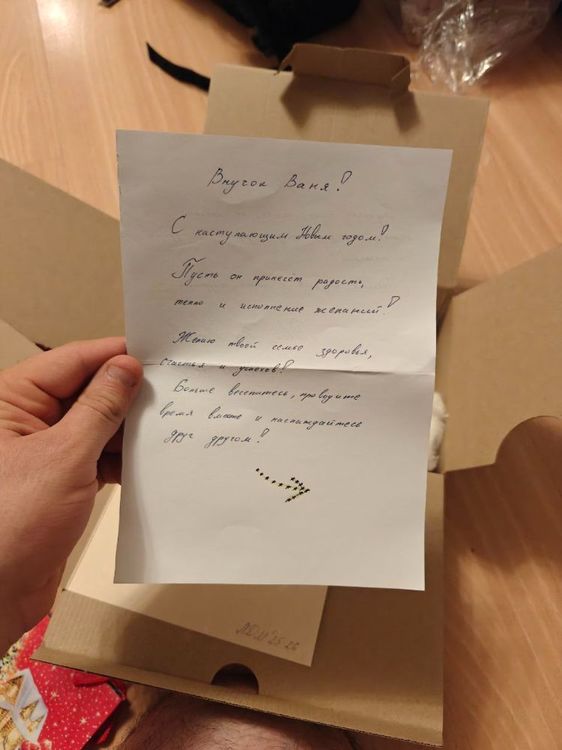 Внучок Ваня!
С наступающим Новым годом!
Пусть он принесет радость,
тепло и исполнение желаний!
Желаю твоей семье здоровья,
счастья и успехов!
Больше веселитесь, проводите
время вместе и наслаждайтесь
друг другом!
25-26